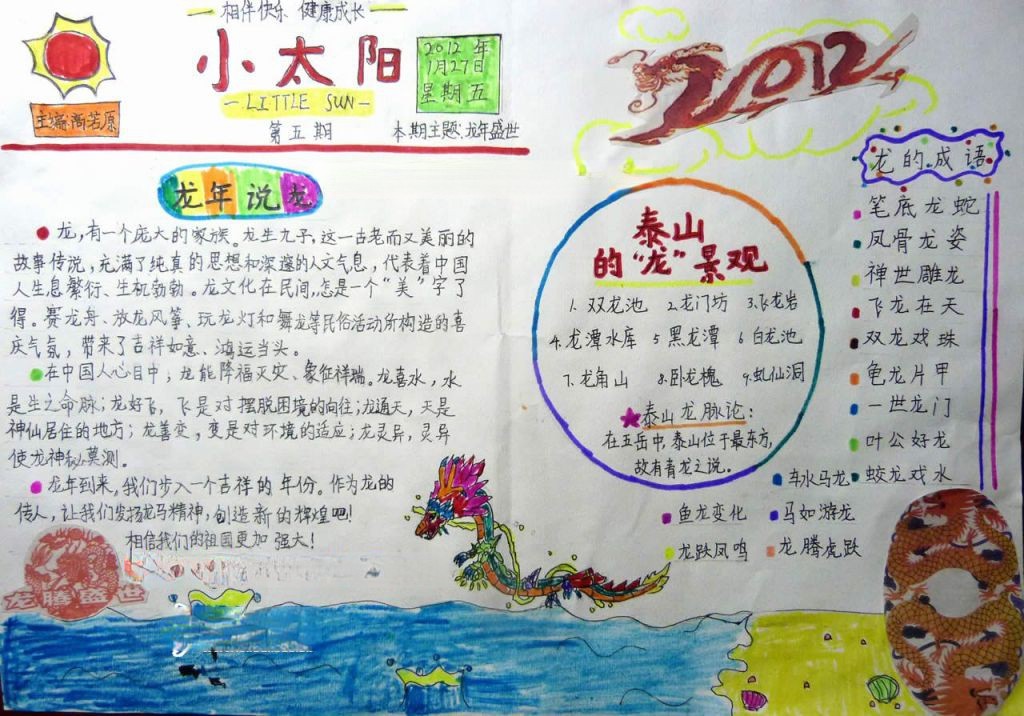 相伴快乐 健康成长
小太阳
LITTLE SUN
第五期
2012年
1月27日
星期五
主编:高若原
本期主题:龙年盛世
2012
龙年说龙
龙,有一个庞大的家族。龙生九子,这一古老而又美丽的
故事传说,充满了纯真的思想和深邃的人文气息,代表着中国
人生息繁衍、生机勃勃。龙文化在民间,怎是一个“美”字了
得。赛龙舟、放龙风筝、玩龙灯和舞龙等民俗活动所构造的喜
庆气氛,带来了吉祥如意、鸿运当头。
在中国人心目中;龙能降福灭灾、象征祥瑞。龙喜水,水
是生之命脉;龙好飞,飞是对摆脱困境的向往;龙通天,天是
神仙居住的地方;龙善变,变是对环境的适应;龙灵异,灵异
使龙神秘莫测。
龙年到来,我们步入一个吉祥的年份。作为龙的
传人,让我们发扬龙马精神,创造新的辉煌吧!
相信我们的祖国更加强大!
龙腾盛世
泰山
的“龙”景观
1. 双龙池 2.龙门坊 3.飞龙岩
4.龙潭水库 5 黑龙潭 6 白龙池
7.龙角山 8.卧龙槐 9.虬仙洞
泰山龙脉论:
在五岳中,泰山位于最东方,
故有青龙之说。
龙的成语
笔底龙蛇
凤骨龙姿
禅世雕龙
飞龙在天
双龙戏珠
龟龙片甲
一世龙门
叶公好龙
车水马龙 蛟龙戏水
鱼龙变化 马如游龙
龙跃凤鸣 龙腾虎跃